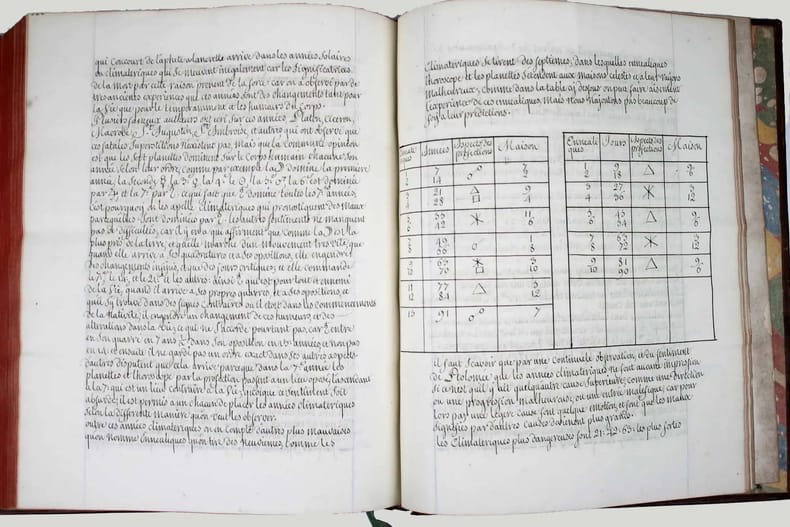 qui concourt de l'aphete a l'anerette arrive dans les années Solaires
ou climateriques qui se meuvent inegalement car les Significateurs
de la mort par cette raison prenent de la force; car on a observé par de
tres anciens experiences que ces années font des changements tant pour
la Vie que pour le temperamment et les humeurs du Corps.
Plusieurs fameux autheurs ont ecrit sur ces années, Platon, Ciceron,
Macrobe, St. Augustin, St. Ambroise, et autres qui ont observé que
ces fatales Superstitions n'existent pas, mais que la commune opinion
est que les Sept planettes dominent Sur le Corps humain chacune Son
année Selon leur ordre, comme par exemple la ☽ domine la premiere
année, la Seconde ☿ la 3e ♀, la 4e ☉, la 5e ♂, la 6e est dominée
par ♃ et la 7e par ♄ ce qui fait que ♄ domine toutes les 7es années,
c'est pourquoy on les apelle climateriques qui pronostiquent des maux
par qu'elles Sont dominées par ♄ les autres Sentiments ne manquent
pas de difficultés, car il y en a qui affirment que comme la ☽ est la
plus prés de la terre, et qu'elle marche d'un mouvement tres vite, que
quand elle arrive a Ses quadratures et a Ses opositions, elle engendre
des changements infinis, et que des jours critiques; et elle commande
le 7e, le 14e, et le 21e et les autres: ainsi ♄ qui est pour tout ennemi
de la Vie, quand il arrive a Ses propres quarrés, et a Ses opositions, et
qu'il Se trouve dans des Signes Contraires ou il etoit dans les commencements
de la Nativité, il engendre un changement de ces humeurs, et des
alterations dans la Vie; ce qui ne S'accorde pourtant pas, car ♄ entre
en Son quarré en 7 ans & dans Son oposition en 15 années, et non pas
en 14 et ensuitte il ne garde pas un ordre exact dans Ses autres aspects
d'autres disputent que cela arrive parceque dans la 7e année les
planettes et l'horoscope par la profection passent a un lieu oposé, Sçavoir
a la 7e qui est un lieu Contraire a la Vie; quoique ce Sentiment Soit
observé; il est permis a un chacun de placer les années climateriques
Selon la differente maniere qu'on veut les observer.
outre ces années climateriques on en compte d'autres plus mauvaises
qu'on nomme Enneatiques qu'on tire des Neuviemes, comme les
Climateriques se tirent des Septiemes, dans lesquelles enneatiques
l'horoscope et les planettes decendent aux maisons celestes et a leur rayons
malheureux; comme dans la table cy dessous on peut faire aisement
l'experience de ces enneatiques, mais Nous n'ajoutons pas beaucoup de
foy a leur predictions.
Années Aspects des profections Maison
1 7 ☍ 7
2 14 2
3 21 △ 9
4 28 □ 4
5 35 ⚹ 11
6 42 6
7 49 ☌ 1
8 56 8
9 63 ⚹ 3
10 70 □ 10
11 77 △ 5
12 84 12
13 91 ☍ 7
Enneatiques Jours Aspects des profections Maison
1 9 △ 9
2 18 6
3 27 ⚹ 3
4 36 12
5 45 △ 9
6 54 6
7 63 ⚹ 3
8 72 12
9 81 △ 9
10 90 6
il faut Scavoir que par une Continuelle observation, et du Sentiment
de Ptolomée que les années climateriques ne font aucune impression
Si ce n'est qu'il y ait quelqu'autre cause Superieure; comme une direction
ou une progression malheureuse; ou une entrée malefique; car pour
lors par une legere cause font quelque emotion et font que les maux
Signifiés par d'autres causes deviennent plus graves.
les Climateriques plus dangereuses sont 21: 42: 63: les plus fortes